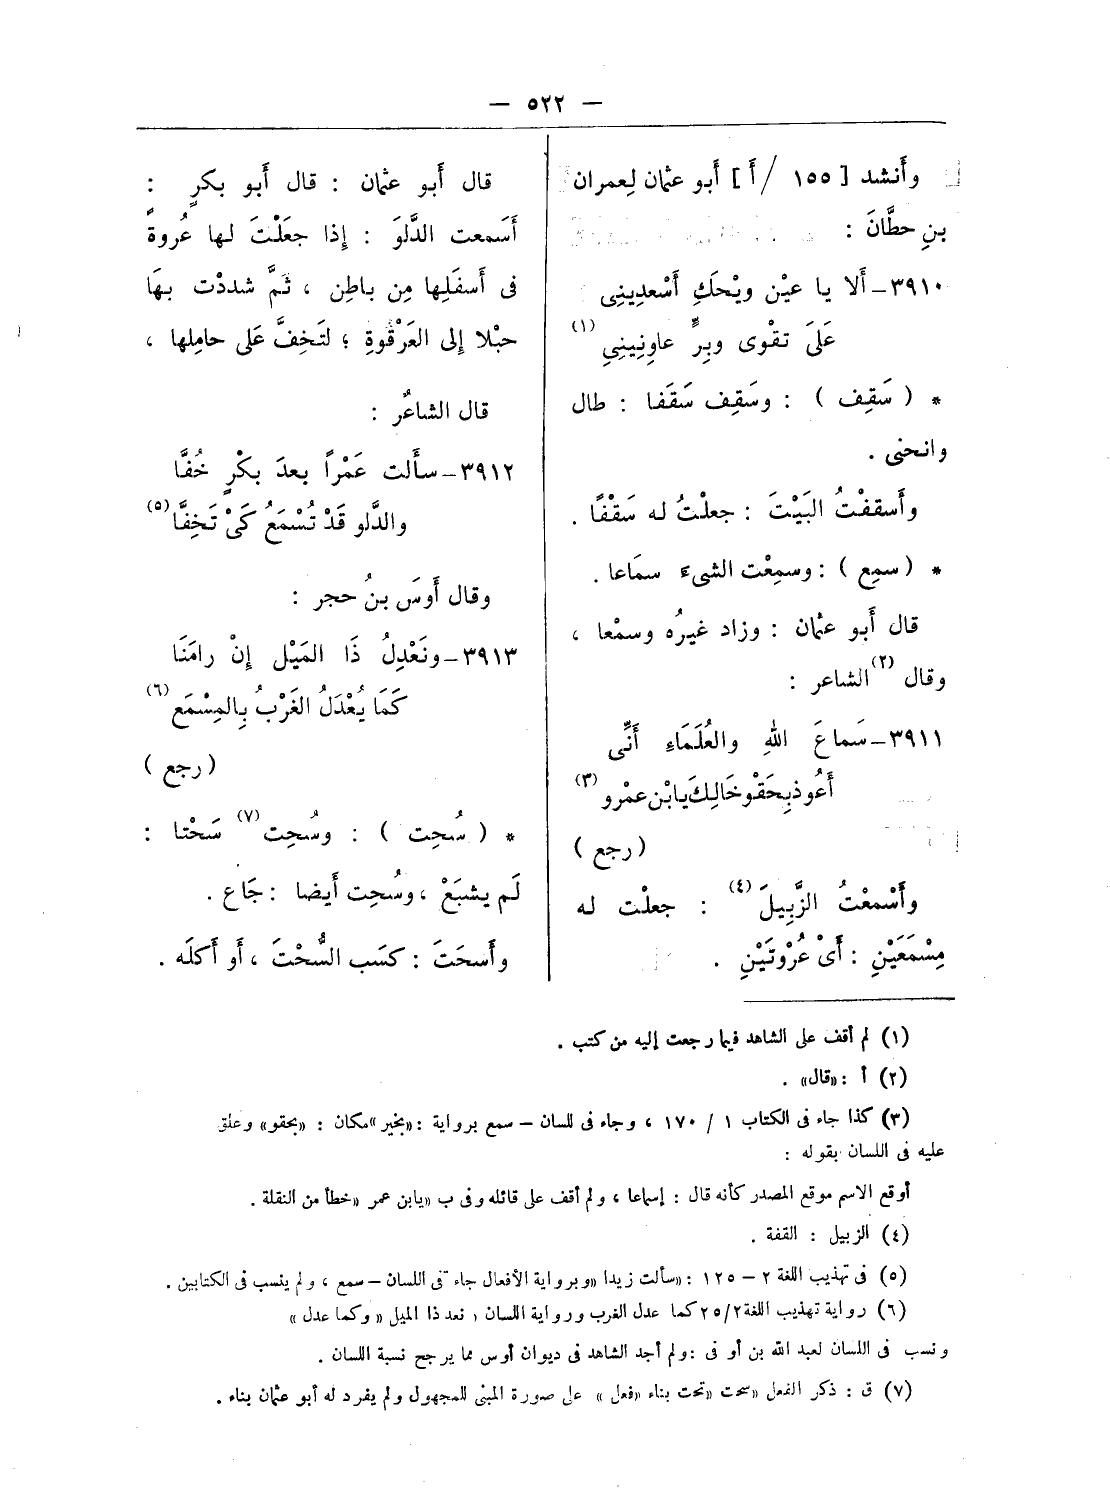 — ٥٢٢ —
وأَنشد [ ١٥٥ /أَ ] أَبو عثمان لِعمران
بنِ حطَّانَ :
٣٩١٠ــ أَلا يا عيْن ويْحَكِ أَسْعدِينِى
عَلَىَ تقْوى وبِرٍّ عاوِنِينِى (١)
* ( سَقِف ) : وسَقِف سَقَفا : طال
وانحنى .
وأَسقفْتُ البَيْتَ : جعلْتُ له سَقْفًا .
* ( سمِع ) : وسمِعْت الشىءَ سمَاعا .
قال أَبو عثمان : وزاد غيرُه وسمْعا ،
وقال (٢) الشاعر :
٣٩١١ــ سَماعَ اللهِ والعُلَمَاءِ أَنِّى
أَعُوذ بِحَقْو خَالِكَ يا بْن عمْرو (٣)
( رجع )
وأَسْمعْتُ الزَّبِيلَ (٤) : جعلْت له
مِسْمَعَيْنِ : أَىْ عُرْوتَيْنِ .
قال أَبو عثمان : قال أَبو بكرٍ :
أَسَمعت الدَّلوَ : إِذا جعَلْتَ لها عُروةً
فى أَسفَلِها مِن باطِن ، ثمَّ شددْت بهَا
حبْلا إِلى العَرْقُوةِ ؛ لتَخِفَّ عَلى حامِلها ،
قال الشاعُر :
٣٩١٢ــ سأَلت عَمْراً بعدَ بكْرٍ خُفَّا
والدَّلو قَدْ تُسْمَعُ كَىْ تَخِفَّا (٥)
وقال أَوسَ بنُ حجر :
٣٩١٣ــ ونَعْدِلُ ذَا المَيْل إِنْ رامَنَا
كَمَا يُعْدَلُ الغَرْبُ بِالمِسْمَعِ (٦)
( رجع )
* ( سُحِت ) : وسُحِت (٧) سَحْتا :
لَم يشبَعْ ، وسُحِت أَيضا : جَاع .
وأَسحَتَ : كسَب السُّحْتَ ، أَو أَكلَه .
(١) لم أقف على الشاهد فيما رجعت إليه من كتب .
(٢) أ : «قال» .
(٣) كذا جاء فى الكتاب ١ / ١٧٠ ، وجاء فى للسان – سمع برواية : «بخير» مكان : «بحقو» وعلق
عليه فى اللسان بقوله :
أوقع الاسم موقع المصدر كأنه قال : إسماعا ، ولم أقف على قائله وفى ب «يابن عمر «خطأ من النقلة .
(٤) الزبيل : القفة .
(٥) فى تهذيب اللغة ٢ – ١٢٥ : «سألت زيدا «وبرواية الأفعال جاء فى اللسان – سمع ، ولم ينسب فى الكتابين .
(٦) رواية تهذيب اللغة ٢/٢٥ كما عدل الغرب ورواية اللسان ، نعد ذا الميل « وكما عدل »
ونسب فى اللسان لعبد الله بن أو فى : ولم أجد الشاهد فى ديوان أوس مما يرجح نسبة اللسان .
(٧) ق : ذكر الفعل «سحت «تحت بناء «فعل » على صورة المبنى للمجهول ولم يفرد له أبو عثمان بناء .